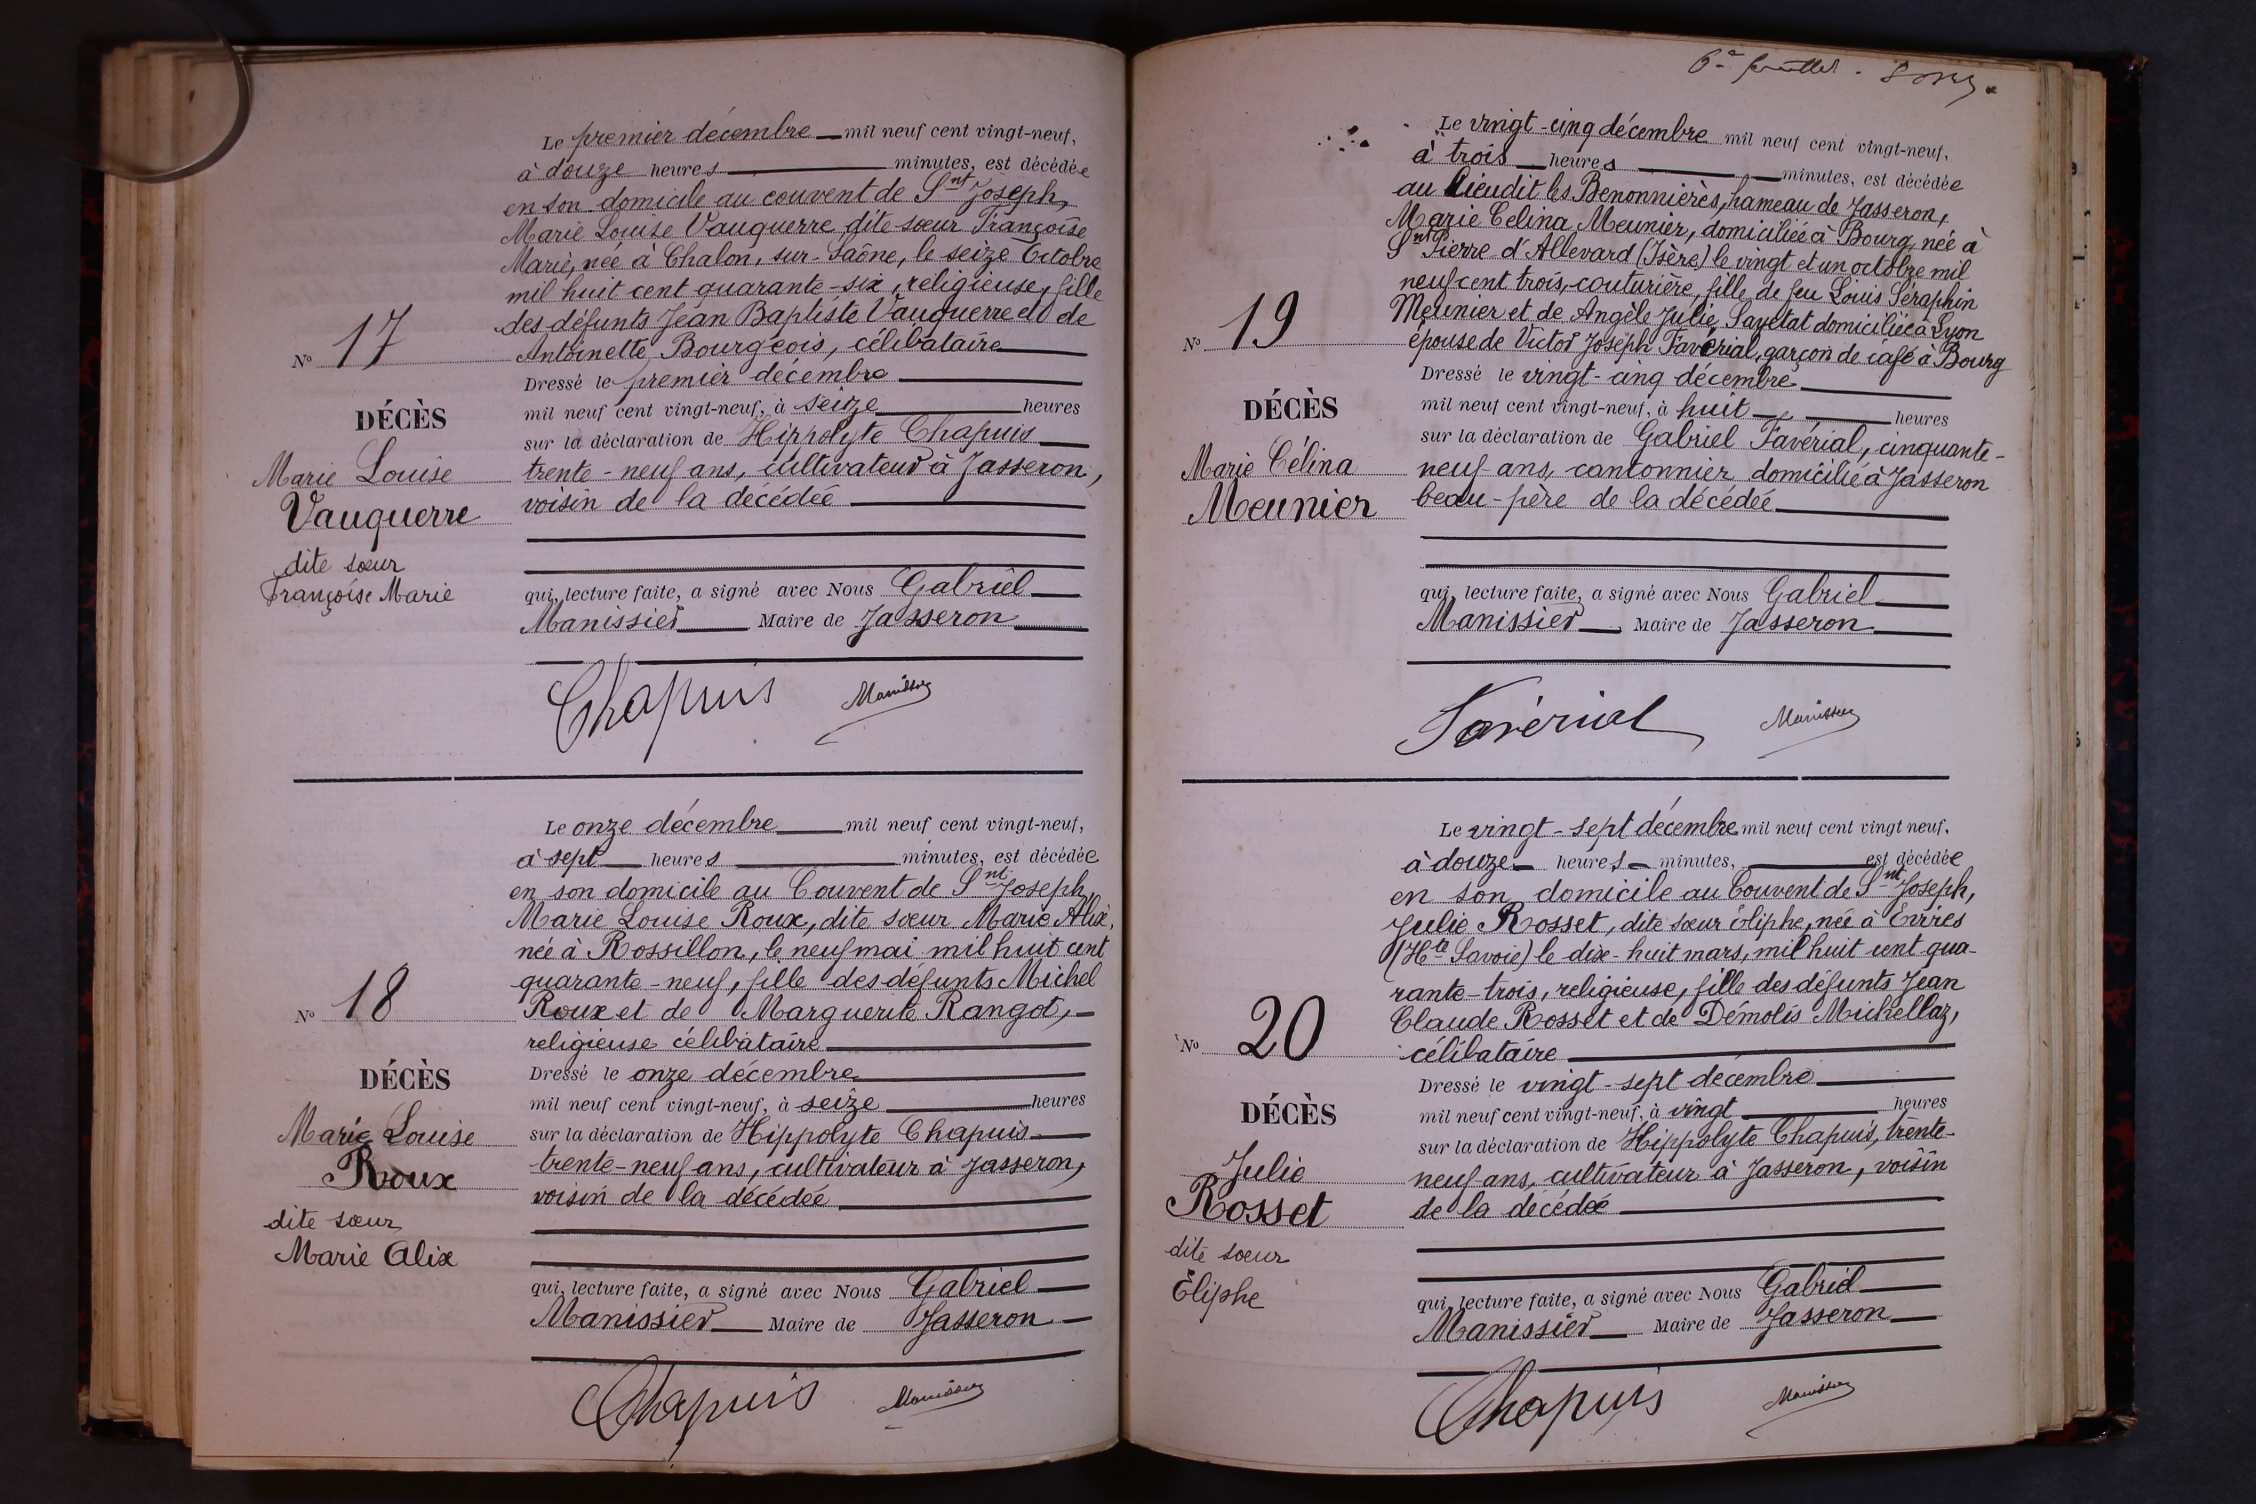 Le premier décembre mil neuf cent vingt-neuf,
à douze heures minutes, est décédée
en son domicile au couvent de Snt Joseph,
Marie Louise Vauquerre dite sœur Françoise
Marie, née à Chalon, sur-Saône, le seize Octobre
mil huit cent quarante-six, religieuse, fille
des défunts Jean Baptiste Vauquerre et de
Antoinette Bourgeois, célibataire
No 17
Dressé le premier décembre
mil neuf cent vingt-neuf, à seize heures
DÉCÈS
sur la déclaration de Hippolyte Chapuis
Marie Louise
trente-neuf ans, cultivateur à Jasseron,
Vauquerre
voisin de la décédée
dite sœur
Françoise Marie
qui, lecture faite, a signé avec Nous Gabriel
Manissier Maire de Jasseron
Chapuis Manissier
Le onze décembre mil neuf cent vingt-neuf,
à sept heures minutes, est décédée
en son domicile au Couvent de Snt Joseph,
Marie Louise Roux, dite sœur Marie Alix,
née à Rossillon, le neuf mai mil huit cent
quarante-neuf, fille des défunts Michel
No 18
Roux et de Marguerite Rangot,
religieuse célibataire
DÉCÈS
Dressé le onze décembre
mil neuf cent vingt-neuf, à seize heures
Marie Louise
sur la déclaration de Hippolyte Chapuis
Roux
trente-neuf ans, cultivateur à Jasseron,
voisin de la décédée
dite sœur
Marie Alix
qui, lecture faite, a signé avec Nous Gabriel
Manissier Maire de Jasseron
Chapuis Manissier
6e feuillet.
Le vingt-cinq décembre mil neuf cent vingt-neuf,
à trois heures minutes, est décédée
au lieudit les Benonnières, hameau de Jasseron,
Marie Celina Meunier, domiciliée à Bourg, née à
Snt Pierre d'Allevard (Isère) le vingt et un octobre mil
neuf cent trois, couturière, fille de feu Louis Séraphin
Meunier et de Angèle Julie Savetat domiciliée à Lyon
épouse de Victor Joseph Favérial, garçon de café à Bourg
No 19
Dressé le vingt-cinq décembre
DÉCÈS
mil neuf cent vingt-neuf, à huit heures
sur la déclaration de Gabriel Favérial, cinquante-
Marie Célina
neuf ans, cantonnier domicilié à Jasseron
Meunier
beau-père de la décédée
qui, lecture faite, a signé avec Nous Gabriel
Manissier Maire de Jasseron
Favérial Manissier
Le vingt-sept décembre mil neuf cent vingt neuf.
à douze heures minutes, est décédée
en son domicile au Couvent de Snt Joseph,
Julie Rosset, dite sœur éliphe, née à Evires
(Hte Savoie) le dix-huit mars, mil huit cent qua-
rante-trois, religieuse, fille des défunts Jean
Claude Rosset et de Démolis Michellaz,
No 20
célibataire
Dressé le vingt-sept décembre
DÉCÈS
mil neuf cent vingt-neuf, à vingt heures
sur la déclaration de Hippolyte Chapuis, trente-
Julie
neuf ans, cultivateur à Jasseron, voisin
Rosset
de la décédée
dite sœur
Éliphe
qui, lecture faite, a signé avec Nous Gabriel
Manissier Maire de Jasseron
Chapuis Manissier